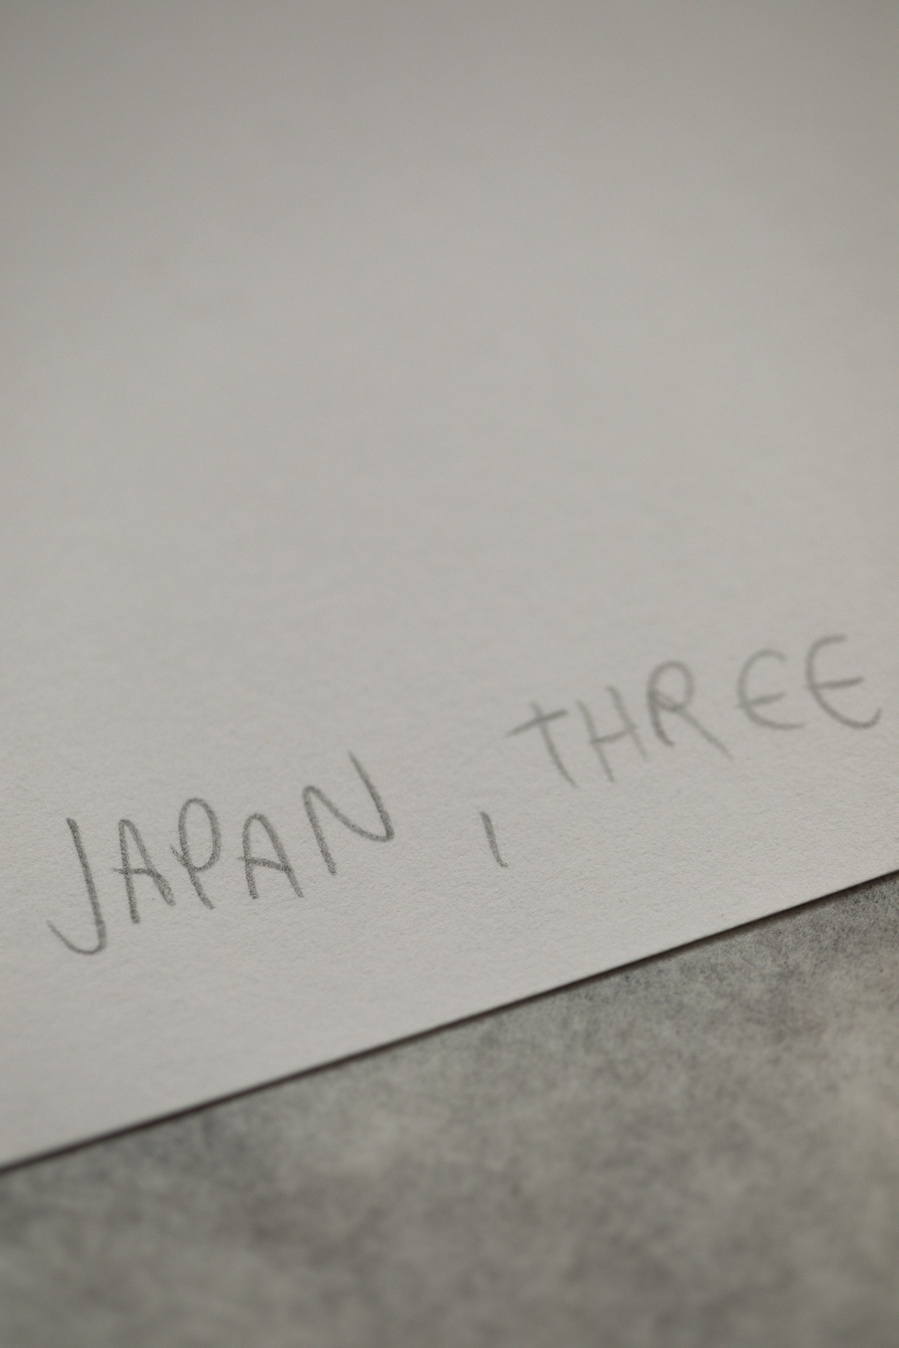 JAPAN, THREE